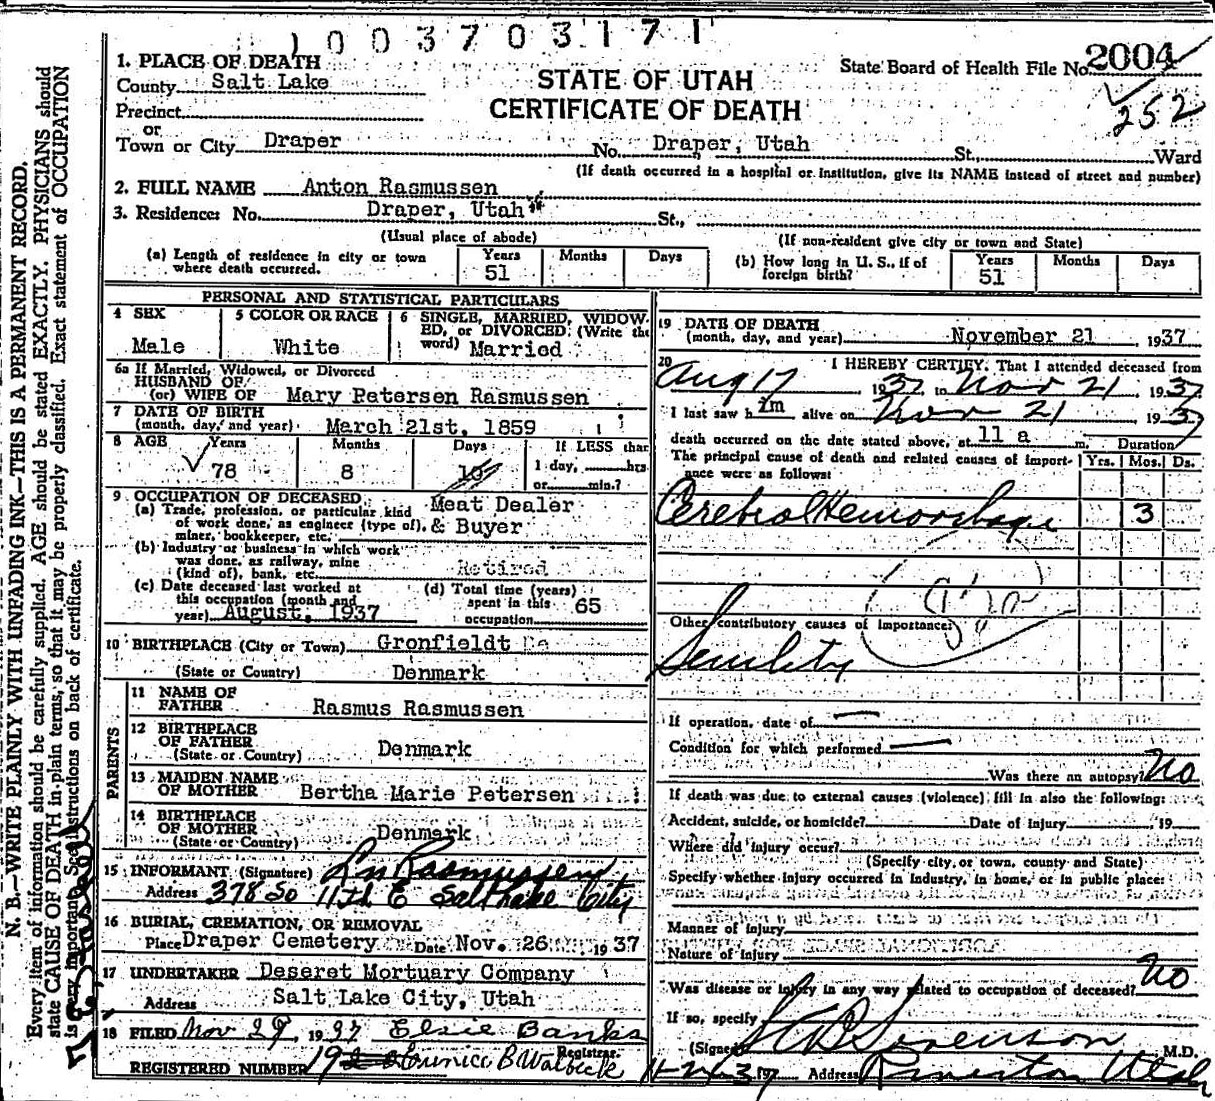 1003703171
1. PLACE OF DEATH
County Salt Lake
Precinct
or
Town or City Draper
STATE OF UTAH
CERTIFICATE OF DEATH
State Board of Health File No. 2004
252
No. Draper, Utah St., Ward
(If death occurred in a hospital or institution, give its NAME instead of street and number)
2. FULL NAME Anton Rasmussen
3. Residence: No. Draper, Utah St.,
(Usual place of abode)
(If non-resident give city or town and State)
(a) Length of residence in city or town where death occurred. Years 51 Months Days
(b) How long in U. S., if of foreign birth? Years 51 Months Days
PERSONAL AND STATISTICAL PARTICULARS
4 SEX Male
5 COLOR OR RACE White
6 SINGLE, MARRIED, WIDOWED, or DIVORCED: (Write the word) Married
6a If Married, Widowed, or Divorced
HUSBAND OF
(or) WIFE OF Mary Petersen Rasmussen
7 DATE OF BIRTH
(month, day, and year) March 21st, 1859
8 AGE Years 78 Months 8 Days 10 If LESS than 1 day, hrs or min.?
9 OCCUPATION OF DECEASED
(a) Trade, profession, or particular kind of work done, as engineer (type of), miner, bookkeeper, etc. Meat Dealer & Buyer
(b) Industry or business in which work was done, as railway, mine (kind of), bank, etc. Retired
(c) Date deceased last worked at this occupation (month and year) August, 1937
(d) Total time (years) spent in this occupation 65
10 BIRTHPLACE (City or Town) Gronfieldt De
(State or Country) Denmark
PARENTS
11 NAME OF FATHER Rasmus Rasmussen
12 BIRTHPLACE OF FATHER
(State or Country) Denmark
13 MAIDEN NAME OF MOTHER Bertha Marie Petersen
14 BIRTHPLACE OF MOTHER
(State or Country) Denmark
15 INFORMANT (Signature) L M Rasmussen
Address 378 So 11th E Salt Lake City
16 BURIAL, CREMATION, OR REMOVAL
Place Draper Cemetery Date Nov. 26 1937
17 UNDERTAKER Deseret Mortuary Company
Address Salt Lake City, Utah
18 FILED Nov 29, 1937 Elsie Banks
Registrar.
REGISTERED NUMBER 19
19 DATE OF DEATH
(month, day, and year) November 21, 1937
20 I HEREBY CERTIFY, That I attended deceased from
Aug 17 1937 to Nov 21, 1937
I last saw him alive on Nov 21 1937
death occurred on the date stated above, at 11 a m. Duration
The principal cause of death and related causes of importance were as follows: Yrs. Mos. Ds.
Cerebral Hemorrhage 3
Other contributory causes of importance:
Senility
If operation, date of
Condition for which performed
Was there an autopsy? No
If death was due to external causes (violence) fill in also the following:
Accident, suicide, or homicide? Date of injury 19
Where did injury occur?
(Specify city, or town, county and State)
Specify whether injury occurred in industry, in home, or in public place:
Manner of injury
Nature of injury
Was disease or injury in any way related to occupation of deceased? No
If so, specify
(Signed) Sorenson M.D.
Address Riverton Utah
N. B.—WRITE PLAINLY WITH UNFADING INK—THIS IS A PERMANENT RECORD.
Every item of information should be carefully supplied. AGE should be stated EXACTLY. PHYSICIANS should
state CAUSE OF DEATH in plain terms, so that it may be properly classified. Exact statement of OCCUPATION
is very important. See instructions on back of certificate.